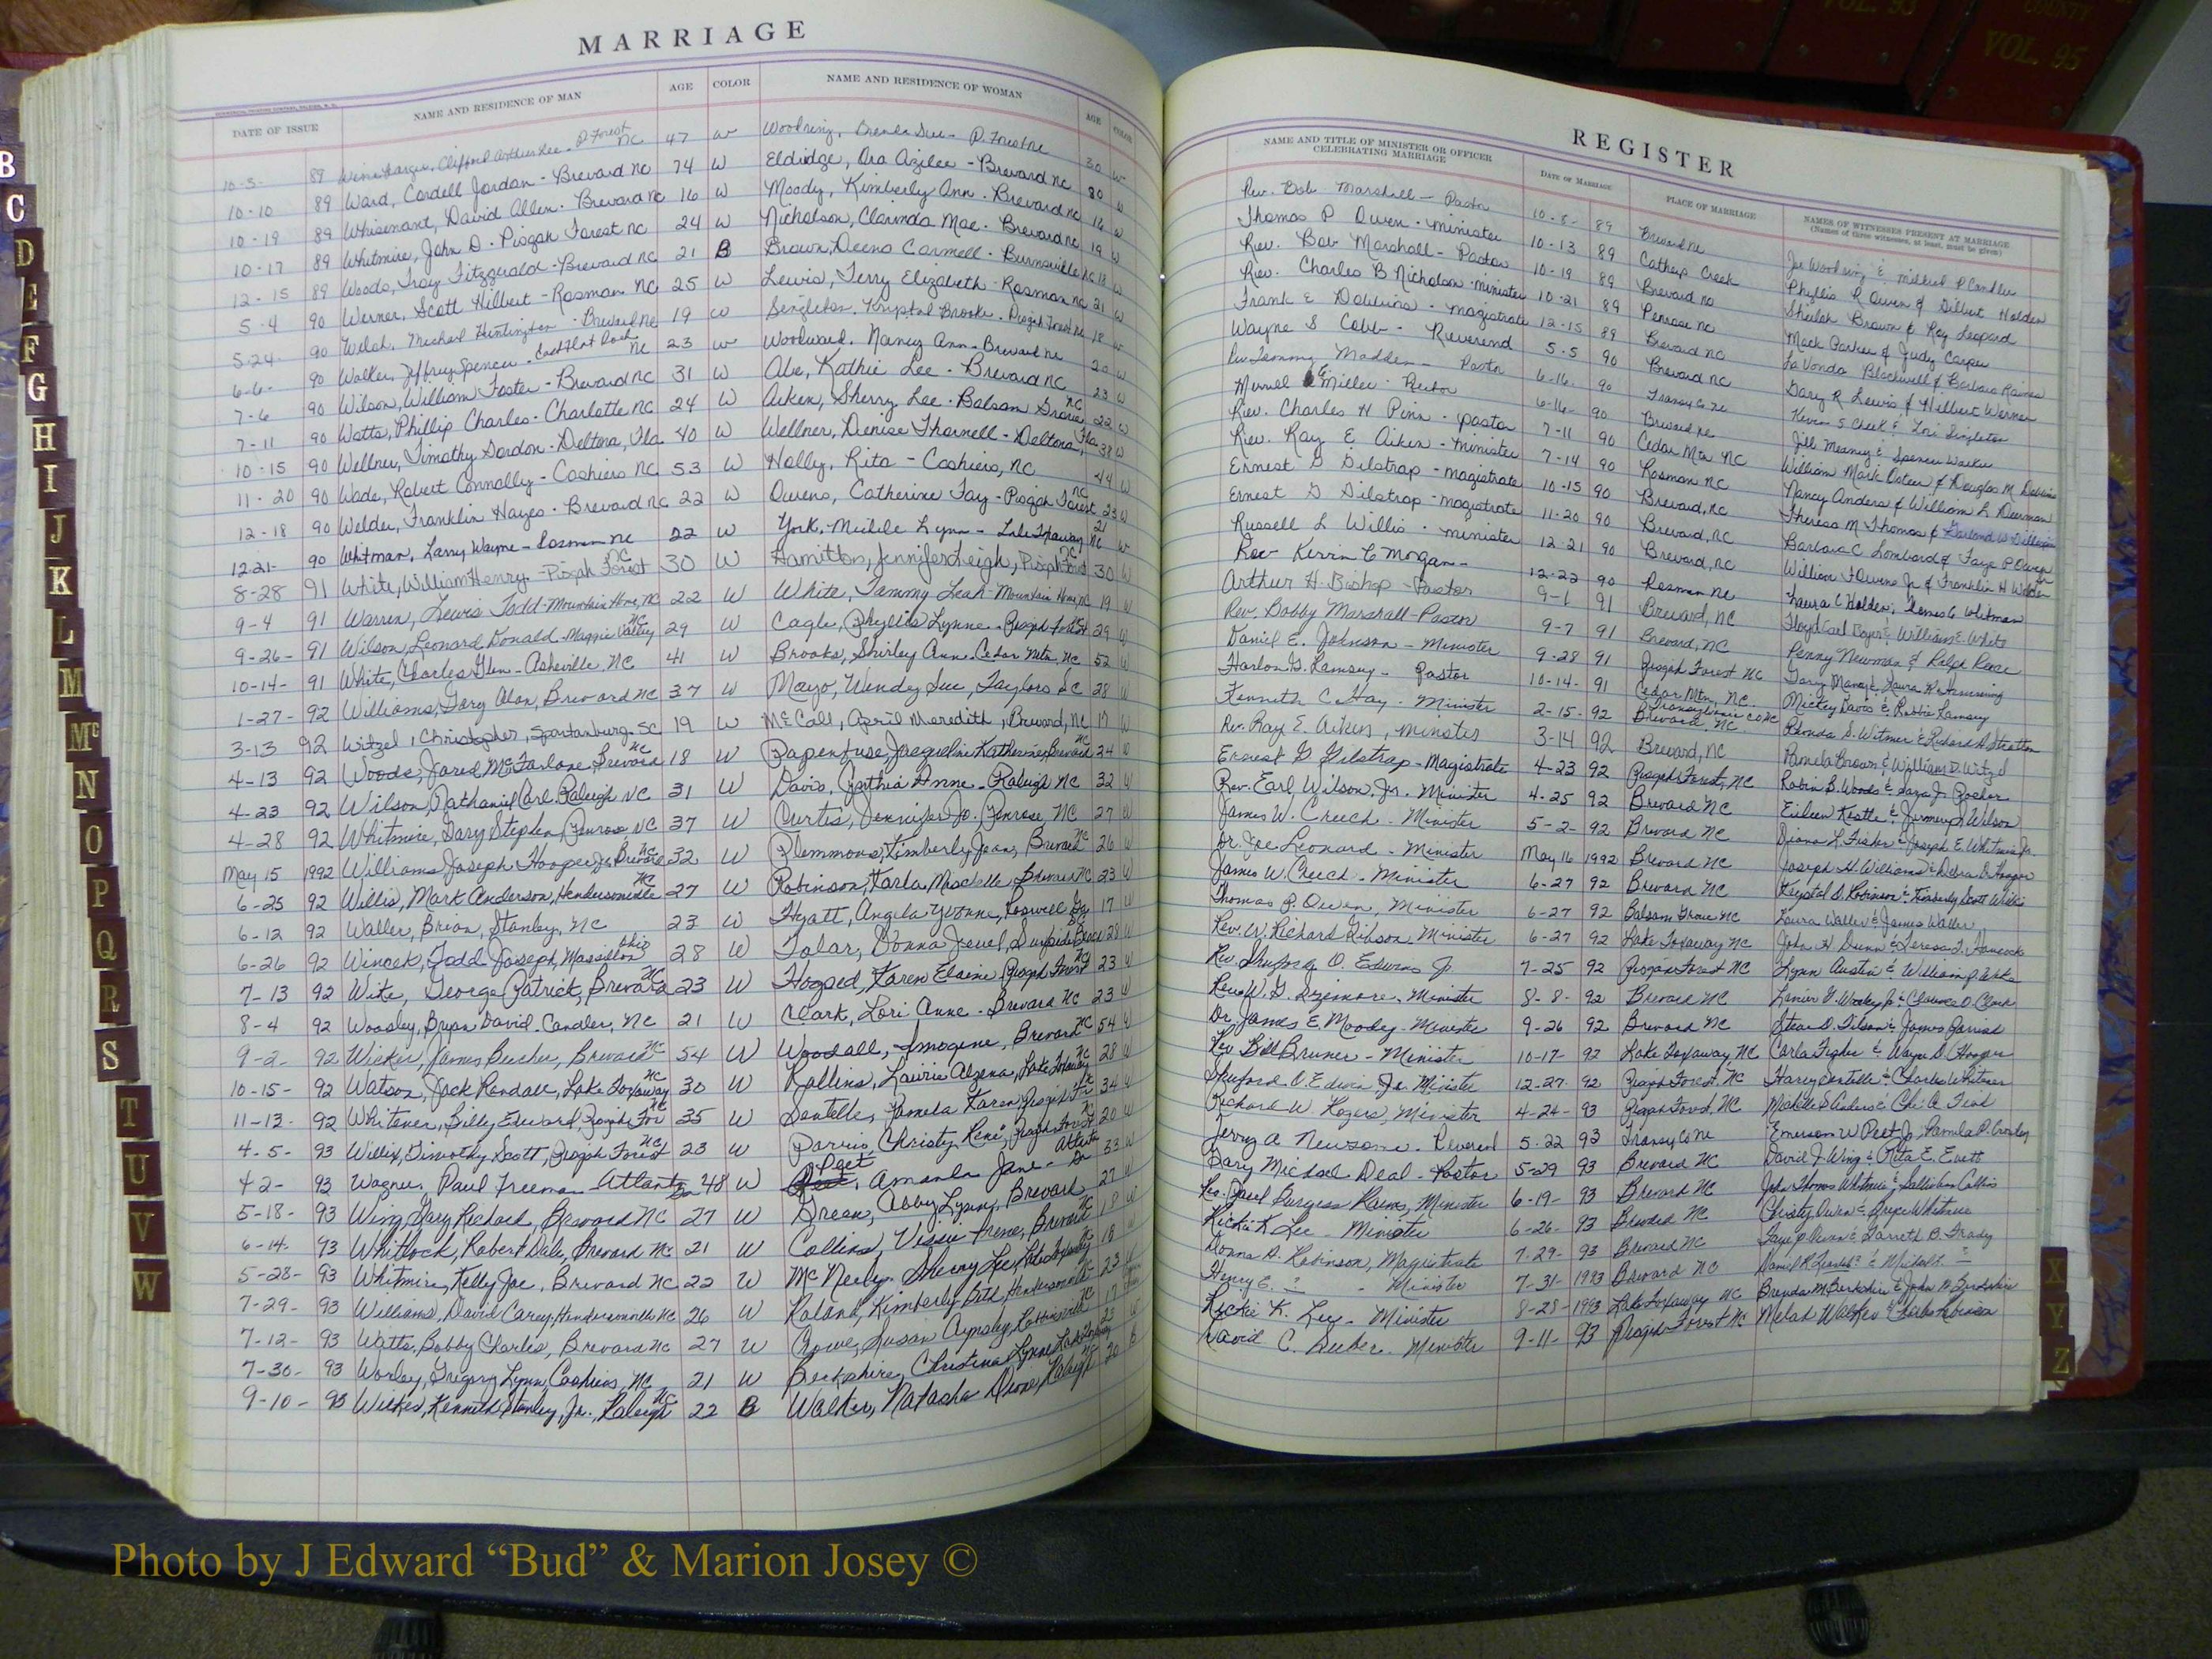 MARRIAGE
DATE OF ISSUE NAME AND RESIDENCE OF MAN AGE COLOR NAME AND RESIDENCE OF WOMAN AGE COLOR
10-5- 89 Clifford P Forest NC 47 W Woodring, Brenda Sue - P. Forest NC 30 W
10-10 89 Ward, Cordell Jordan - Brevard NC 74 W Eldridge, Ora Azilee - Brevard NC 80 W
10-19 89 Whisenant, David Allen - Brevard NC 16 W Moody, Kimberly Ann - Brevard NC 16 W
10-17 89 Whitmire, John D. - Pisgah Forest NC 24 W Nicholson, Clarinda Mae - Brevard NC 19 W
12-15 89 Woods, Troy Fitzgerald - Brevard NC 21 B Brown, Deena Carmell - Burnsville NC 18
5-4 90 Werner, Scott Hilbert - Rosman NC 25 W Lewis, Terry Elizabeth - Rosman NC 21 W
5-24- 90 Welch, Michael Huntington - Brevard NC 19 W Singleton, Krystal Brooke - Pisgah Forest NC 18 W
6-6- 90 Walker, Jeffrey Spencer - East Flat Rock NC 23 W Woodward, Nancy Ann - Brevard NC 20 W
7-6 90 Wilson, William Foster - Brevard NC 31 W Abe, Kathie Lee - Brevard NC 23 W
7-11 90 Watts, Phillip Charles - Charlotte NC 24 W Aiken, Sherry Lee - Balsam Grove NC 22 W
10-15 90 Wellner, Timothy Gordon - Deltona, Fla 40 W Wellner, Denise Tharnell - Deltona, Fla 38 W
11-20 90 Wade, Robert Connally - Cashiers NC 53 W Holly, Rita - Cashiers, NC 44 W
12-18 90 Welder, Franklin Hayes - Brevard NC 22 W Owens, Catherine Fay - Pisgah Forest NC 23 W
12-21- 90 Whitman, Larry Wayne - Rosman NC 22 W York, Michele Lynn - Lake Toxaway NC 21 W
8-28 91 White, William Henry - Pisgah Forest NC 30 W Hamilton, Jennifer Leigh, Pisgah Forest NC 30 W
9-4 91 Warren, Lewis Todd - Mountain Home, NC 22 W White, Tammy Leah - Mountain Home, NC 19 W
9-26- 91 Wilson, Leonard Donald - Maggie Valley NC 29 W Cagle, Phyllis Lynne - Pisgah Forest 29 W
10-14- 91 White, Charles Glen - Asheville, NC 41 W Brooks, Shirley Ann - Cedar Mtn, NC 52 W
1-27- 92 Williams, Gary Alan, Brevard NC 37 W Mayo, Wendy Sue, Taylors SC 28 W
3-13 92 Witzel, Christopher, Spartanburg, SC 19 W McCall, April Meredith, Brevard, NC 17 W
4-13 92 Woods, Jared McFarlane, Brevard NC 18 W Papenfuse, Jacqueline Katherine, Brevard NC 24 W
4-23 92 Wilson, Nathaniel Carl - Raleigh NC 31 W Davis, Cynthia Anne - Raleigh NC 32 W
4-28 92 Whitmire, Gary Stephen, Penrose, NC 37 W Curtis, Jennifer Jo. Penrose, NC 27 W
May 15 1992 Williams, Joseph Hooper Jr, Brevard NC 32 W Plemmons, Kimberly Jean, Brevard NC 26 W
6-25 92 Willis, Mark Anderson, Hendersonville NC 27 W Robinson, Karla Brevard NC 23 W
6-12 92 Waller, Brian, Stanley, NC 23 W Hyatt, Angela Yvonne, Roswell Ga 17 W
6-26 92 Wincek, Todd Joseph, Massillon Ohio 28 W Tolar, Donna Jewel, Surfside Beach SC 28 W
7-13 92 Wite, George Patrick, Brevard NC 23 W Karen Elaine, Pisgah Forest NC 23 W
8-4 92 Woosley, Bryan David - Candler, NC 21 W Clark, Lori Anne - Brevard NC 23 W
9-2- 92 Wicker, James Beecher, Brevard NC 54 W Woodall, Imogene, Brevard NC 54 W
10-15- 92 Watson, Jack Randall, Lake Toxaway NC 30 W Rollins, Laurie Lake Toxaway NC 28 W
11-13- 92 Whitener, Billy Edward, Pisgah For NC 35 W Santelle, Pamela Karen, Pisgah 34 W
4-5- 93 Willix, Timothy Scott, Pisgah Forest NC 23 W Parris, Christy Rene', Pisgah Forest NC 20 W
4-2- 93 Wagner, Paul Freeman - Atlanta Ga 48 W Peet, Amanda Jane - Atlanta Ga 33 W
5-18- 93 Wing, Gary Richard, Brevard NC 27 W Abby Lynn, Brevard NC 27 W
6-14- 93 Whitlock, Robert Dale, Brevard NC 21 W Collins, Irene, Brevard NC 18 W
5-28- 93 Whitmire, Kelly Joe, Brevard NC 22 W McNeely, Sherry Lee, Lake Toxaway 18 W
7-29- 93 Williams, David Carey, Hendersonville NC 26 W Roland, Kimberly Beth, Hendersonville 23
7-12- 93 Watts, Bobby Charles, Brevard NC 27 W Crowe, Susan Robbinsville NC 17
7-30- 93 Worley, Gregory Lynn, Cashiers, NC 21 W Berkshire, Christina Lynne, Lake Toxaway 23 W
9-10- 93 Wilkes, Kenneth Stanley, Jr., Raleigh NC 22 B Walker, Natasha Dione, Raleigh NC 20 B
REGISTER
NAME AND TITLE OF MINISTER OR OFFICER CELEBRATING MARRIAGE DATE OF MARRIAGE PLACE OF MARRIAGE NAMES OF WITNESSES PRESENT AT MARRIAGE
(Names of three witnesses, at least, must be given)
Rev. Bob Marshall - Pastor 10-8- 89 Brevard NC Joe Woodring & Mildred P Candler
Thomas P Owen - minister 10-13 89 Cathey Creek Phyllis R Owen & Dilbert Holden
Rev. Bob Marshall - Pastor 10-19 89 Brevard NC Sheilah Brown & Ray Leopard
Rev. Charles B Nicholson - minister 10-21 89 Penrose NC Mack Parker & Judy Casper
Frank E Dobbins - magistrate 12-15 89 Brevard NC LaVonda Blackwell & Barbara Raines
Wayne S Cobb - Reverend 5-5 90 Brevard NC Gary R Lewis & Hilbert Werner
Rev Tommy Madden - Pastor 6-16- 90 Transy Co NC Kevin S Cheek & Lori Singleton
Merrel Miller - Rector 6-16- 90 Brevard NC Jill Meaney & Spencer Walker
Rev. Charles H Pinn - pastor 7-11 90 Cedar Mtn NC William Mark Osteen & Douglas M Dobbins
Rev. Ray E Aiken - minister 7-14 90 Rosman NC Nancy Anders & William L Deerman
Ernest G Gilstrap - magistrate 10-15 90 Brevard, NC Theresa M Thomas & Garland W Gillespie
Ernest G Gilstrap - magistrate 11-20 90 Brevard, NC Barbara C Lombard & Faye P Owen
Russell L Willis - minister 12-21 90 Brevard, NC William T Owens Jr & Franklin H Welder
Rev Kevin C Mogan - 12-22 90 Rosman NC Laura C Holden, Whitman
Arthur H. Bishop - Pastor 9-1 91 Brevard, NC Floyd Carl & William E. White
Rev. Bobby Marshall - Pastor 9-7 91 Brevard, NC Penny Newman & Ralph Reece
Daniel E. Johnson - Minister 9-28 91 Pisgah Forest NC
Harlon G. Ramsey - Pastor 10-14- 91 Cedar Mtn, NC. Mickey Davis & Robbie Ramsey
Kenneth C. Hay - Minister 2-15- 92 Transylvania Co NC Brevard, NC. Rhonda S. Witmer & Richard A Stratton
Rev. Ray E. Aiken, minister 3-14 92 Brevard, NC Pamela Brown & William D. Witzel
Ernest G Gilstrap - Magistrate 4-23 92 Pisgah Forest, NC Robin B. Woods &
Rev. Earl Wilson, Jr. Minister 4-25 92 Brevard NC Eileen Kestle & Wilson
James W. Creech - Minister 5-2- 92 Brevard NC Diana L. Fisher & Joseph E. Whitmire Jr.
Dr. Joe Leonard - Minister May 16 1992 Brevard NC Joseph H. Williams & Debra D Hooper
James W. Creech - Minister 6-27 92 Brevard NC Krystal D. Robinson & Kimberly Scott Willis
Thomas P. Owen, Minister 6-27 92 Balsam Grove NC Laura Waller & James Waller
Rev. W. Richard Gibson, Minister 6-27 92 Lake Toxaway NC John H Dunn & Teresa F. Hancock
Rev. Shuford O. Edwins Jr. 7-25 92 Pisgah Forest NC Lynn Austin & William
Rev W. G. Sizemore - Minister 8-8- 92 Brevard NC Clarence O. Clark
Dr. James E. Moody - Minister 9-26 92 Brevard NC
Rev Bill Bruner - Minister 10-17- 92 Lake Toxaway, NC Carla Fisher & Wayne D. Hooper
Shuford O. Edwin Jr. Minister 12-27- 92 Pisgah Forest, NC & Charles Whitener
Richard W. Rogers, Minister 4-24- 93 Pisgah Forest, NC
Jerry A Newsome - Reverend 5-22 93 Transy Co NC Emerson W Peet Jr, Pamela P. Crosby
Gary Michael Deal - Pastor 5-29 93 Brevard NC David J Wing & Rita E. Evett
Minister 6-19- 93 Brevard NC John Thomas Whitmire & Collins
Rickie K Lee - Minister 6-26- 93 Brevard NC Christy Owen & Whitmire
Donna A. Robinson, Magistrate 7-29- 93 Brevard NC Faye P. Owen & Garrett B. Grady
Henry E. ? - Minister 7-31- 1993 Brevard NC
Rickie K. Lee - Minister 8-28- 1993 Lake Toxaway NC Brenda M Berkshire & John Berkshire
David C. Sueber - Minister 9-11- 93 Pisgah Forest NC Walker &
B
C
D
E
F
G
H
I
J
K
L
M
Mc
N
O
P
Q
R
S
T
U
V
W
X
Y
Z
VOL. 93
COUNTY
VOL. 95
Photo by J Edward “Bud” & Marion Josey ©